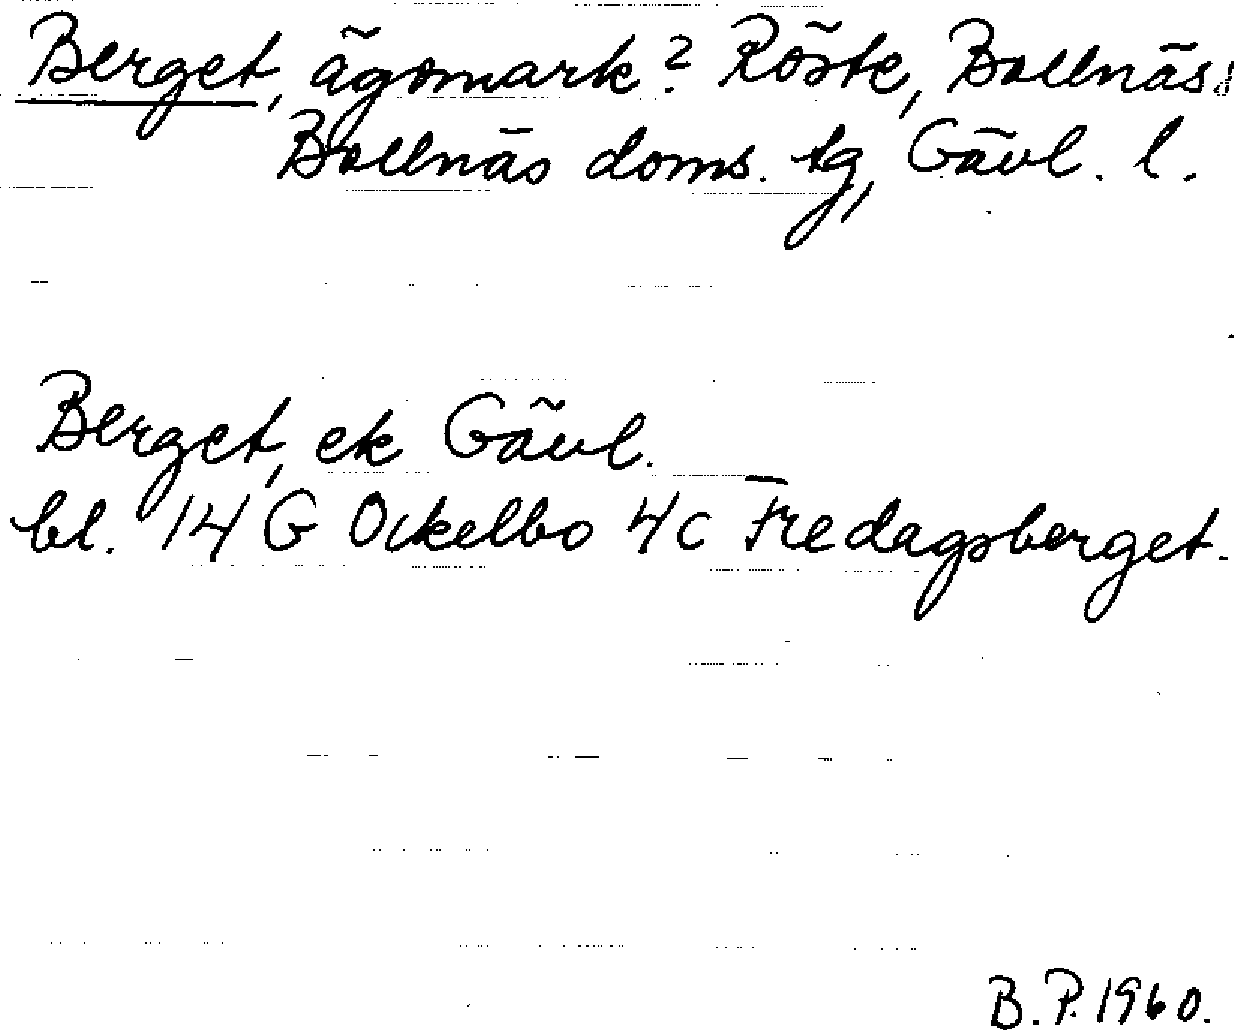 Berget, ägomark? Röste, Bollnäs,
Bollnäs doms. tg, Gävl. l.
Berget, ek Gävl.
bl. 14 G Ockelbo 4c Fredagsberget.
B.P. 1960.